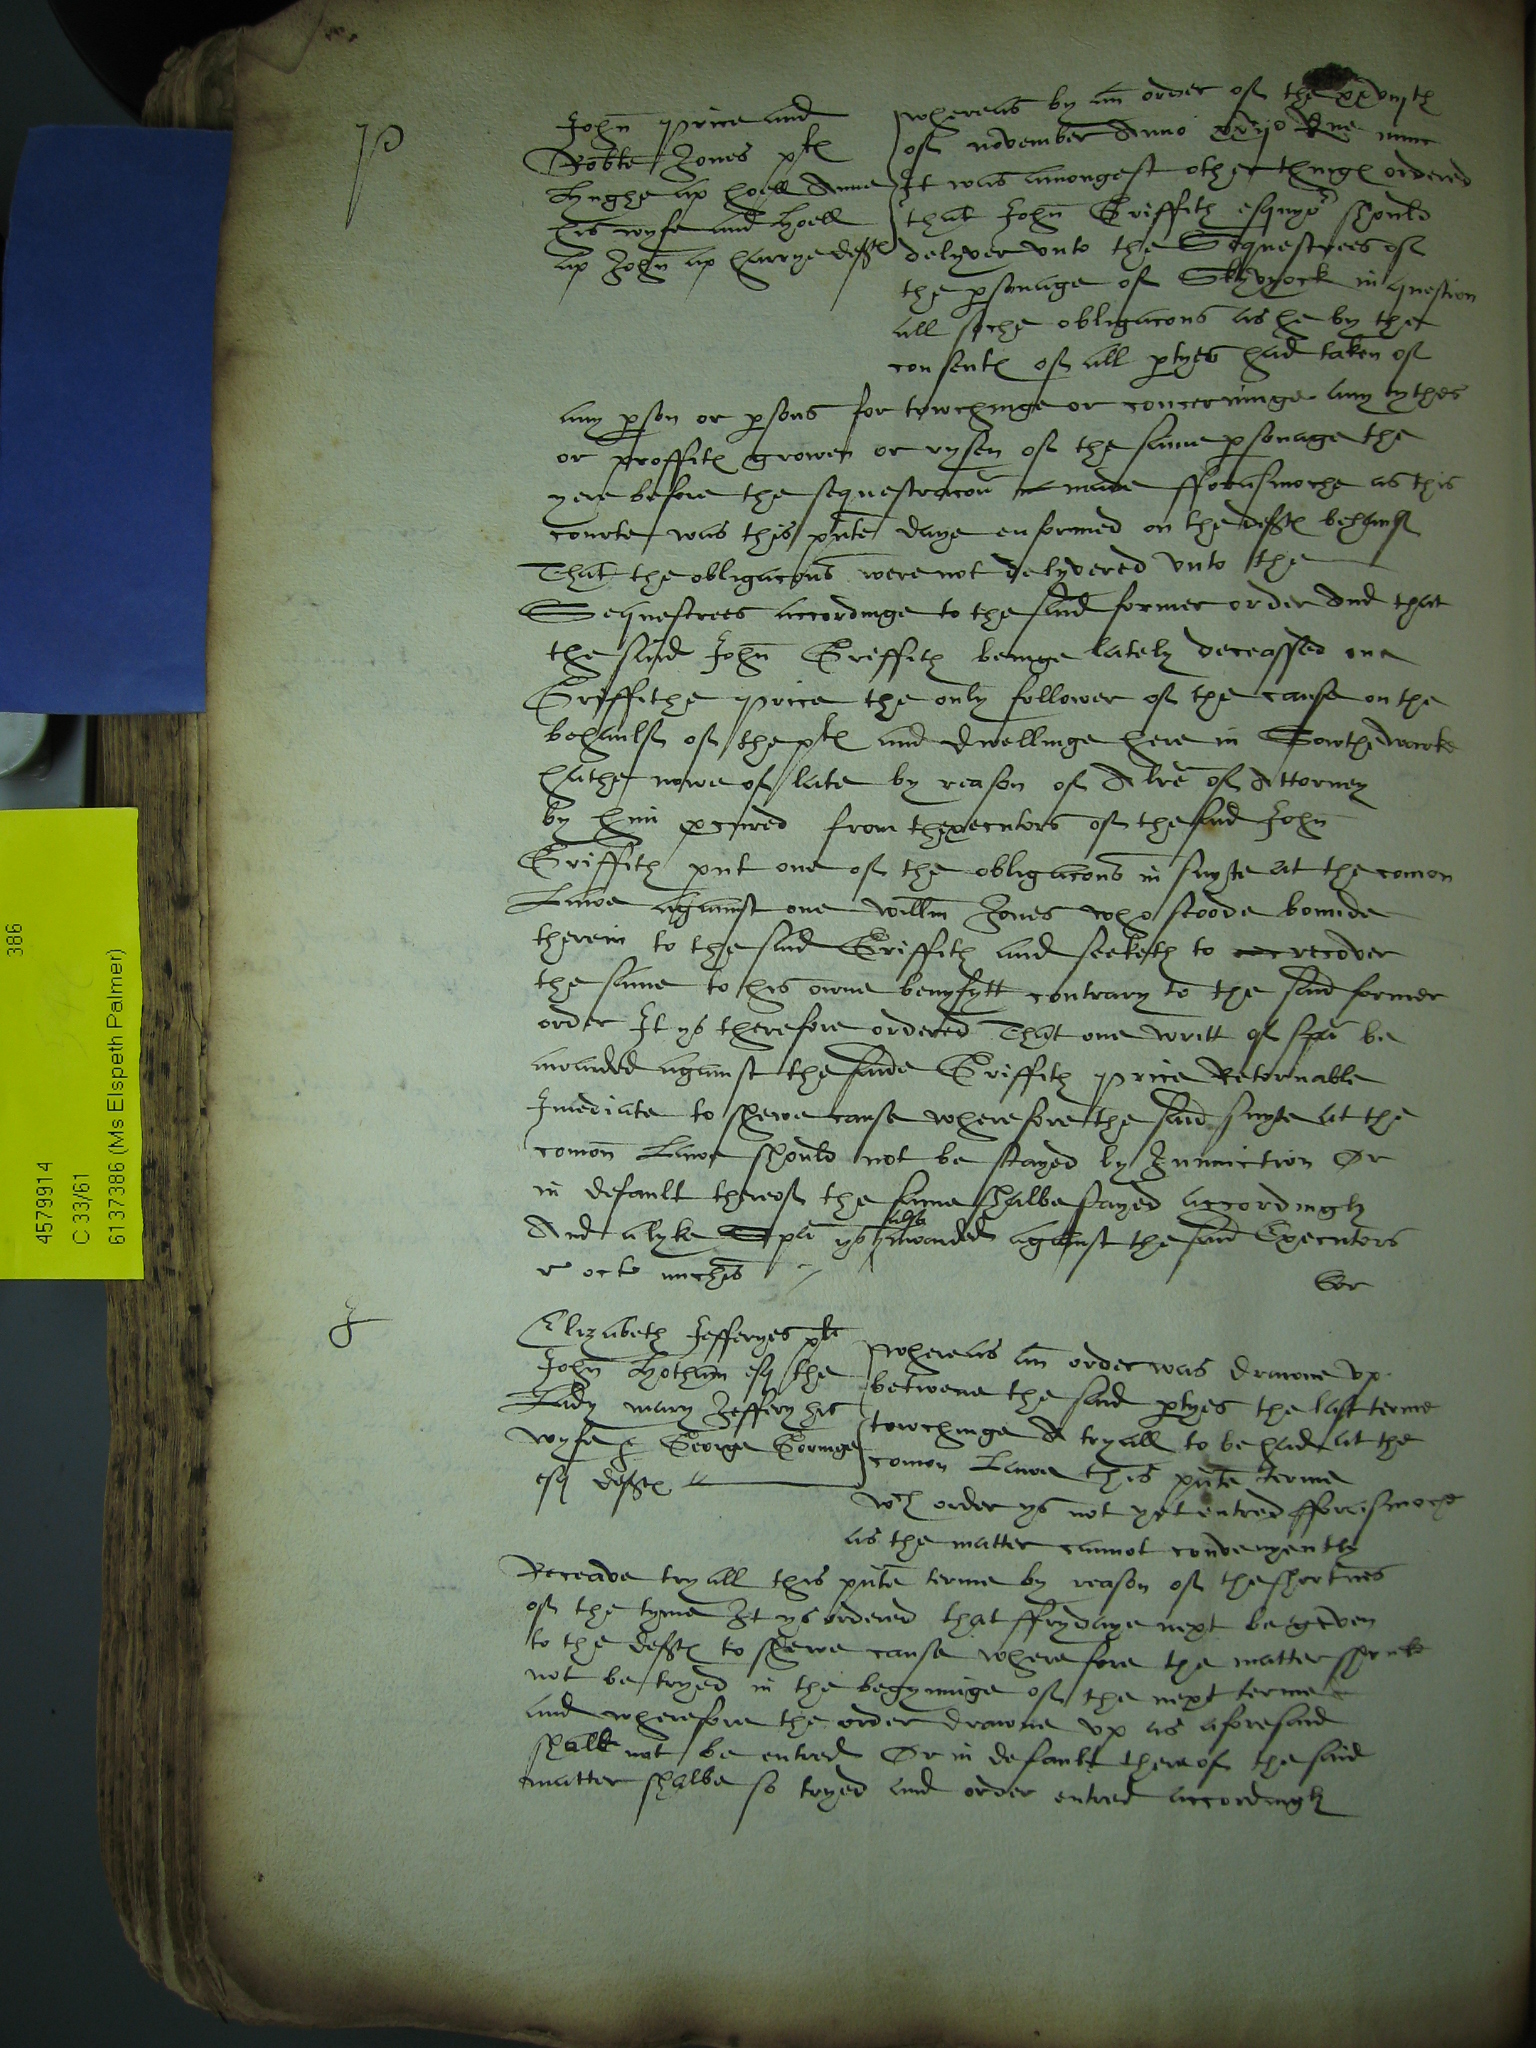 P
John Price and
Robte Jones plts
Hughe ap Hoell Anne
his wyfe and Hoell
ap John ap Harrye defts
Whereas by an order of the xxviijth
of november Anno Rne nunc
It was amongest other things ordered
that John Griffith esquyor should
delyver unto the Sequestrees of
the psonage of Skyvyock in question
all suche obligacons as he by the
consente of all ptyes had taken of
any pson or psons for towchinge or concerninge any tythes
or proffits growen or rysen of the same psonage the
yere before the sequestracon made fforasmoche as this
courte was this pnte daye enformed on the defts behaulf
That the obligacons were not delyvered unto the
Sequestrees accordinge to the said former order And that
the said John Griffith beinge lately deceassed one
Griffithe Price the only follower of the cause on the
behaulf of the plts and dwellinge here in Sowthewarke
hathe nowe of late by reason of A lre of Attorney
by him pcured from thexecutors of the said John
Griffith put one of the obligacons in suyte at the comon
Lawe against one Willm Jones who stoode bounde
therein to the said Griffith and seeketh to recover
the same to his owne benyfytt contrary to the said former
order It ys therefore ordered That one writt of spa be
awarded against the saide Griffith Price Retornable
Imediate to shewe cause wherefore the said suyte at the
comon Lawe should not be stayed by Iniunction Or
in default thereof the same shalbe stayed accordingly
And a lyke Spa ys also awarded against the said Executors
r octo michis
Ger
J
Elizabeth Jefferyes plte
John Hotham esq the
Lady Mary Jeffery his
wyfe & George Goringe
esq defts
Whereas an order was drawne up
betwene the said ptyes the last terme
towchinge A tryall to be had at the
comon Lawe this pnte terme
wch order ys not yet entred fforasmoche
as the matter cannot convenyently
Receave tryall this pnte terme by reason of the shortnes
of the tyme It ys ordered that ffrydaye next be geven
to the defts to shewe cause wherefore the matter should
not be tryed in the begynninge of the next terme
and wherefore the order drawne up as aforesaid
shall not be entred Or in default thereof the said
matter shalbe so tryed and order entred accordingly
386
4579914
C 33/61
6137386 (Ms Elspeth Palmer)